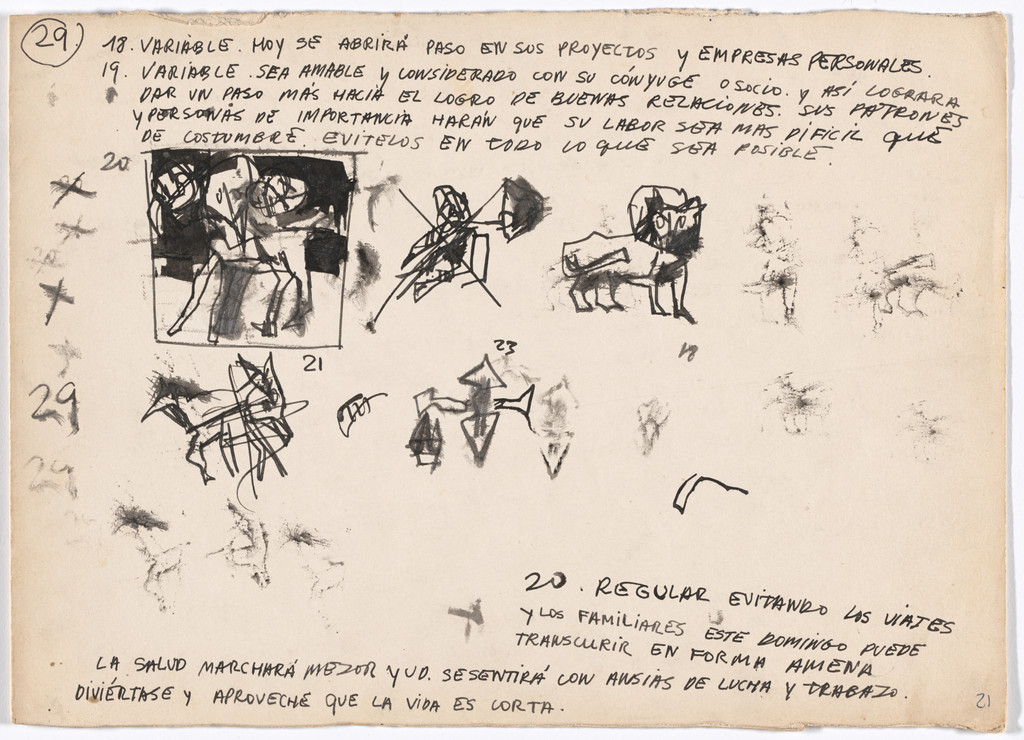 29.
18. VARIABLE. HOY SE ABRIRÁ PASO EN SUS PROYECTOS Y EMPRESAS PERSONALES.
19. VARIABLE. SEA AMABLE Y CONSIDERADO CON SU CÓNYUGE O SOCIO. Y ASÍ LOGRARA
DAR UN PASO MÁS HACIA EL LOGRO DE BUENAS RELACIONES. SUS PATRONES
Y PERSONAS DE IMPORTANCIA HARÁN QUE SU LABOR SEA MAS DIFICIL QUE
DE COSTUMBRE. EVITELOS EN TODO LO QUE SEA POSIBLE.
20
21
23
18
29
29
20. REGULAR EVITANDO LOS VIAJES
Y LOS FAMILIARES ESTE DOMINGO PUEDE
TRANSCURIR EN FORMA AMENA
LA SALUD MARCHARÁ MEJOR Y UD. SE SENTIRÁ CON ANSIAS DE LUCHA Y TRABAJO.
DIVIÉRTASE Y APROVECHE QUE LA VIDA ES CORTA.
21